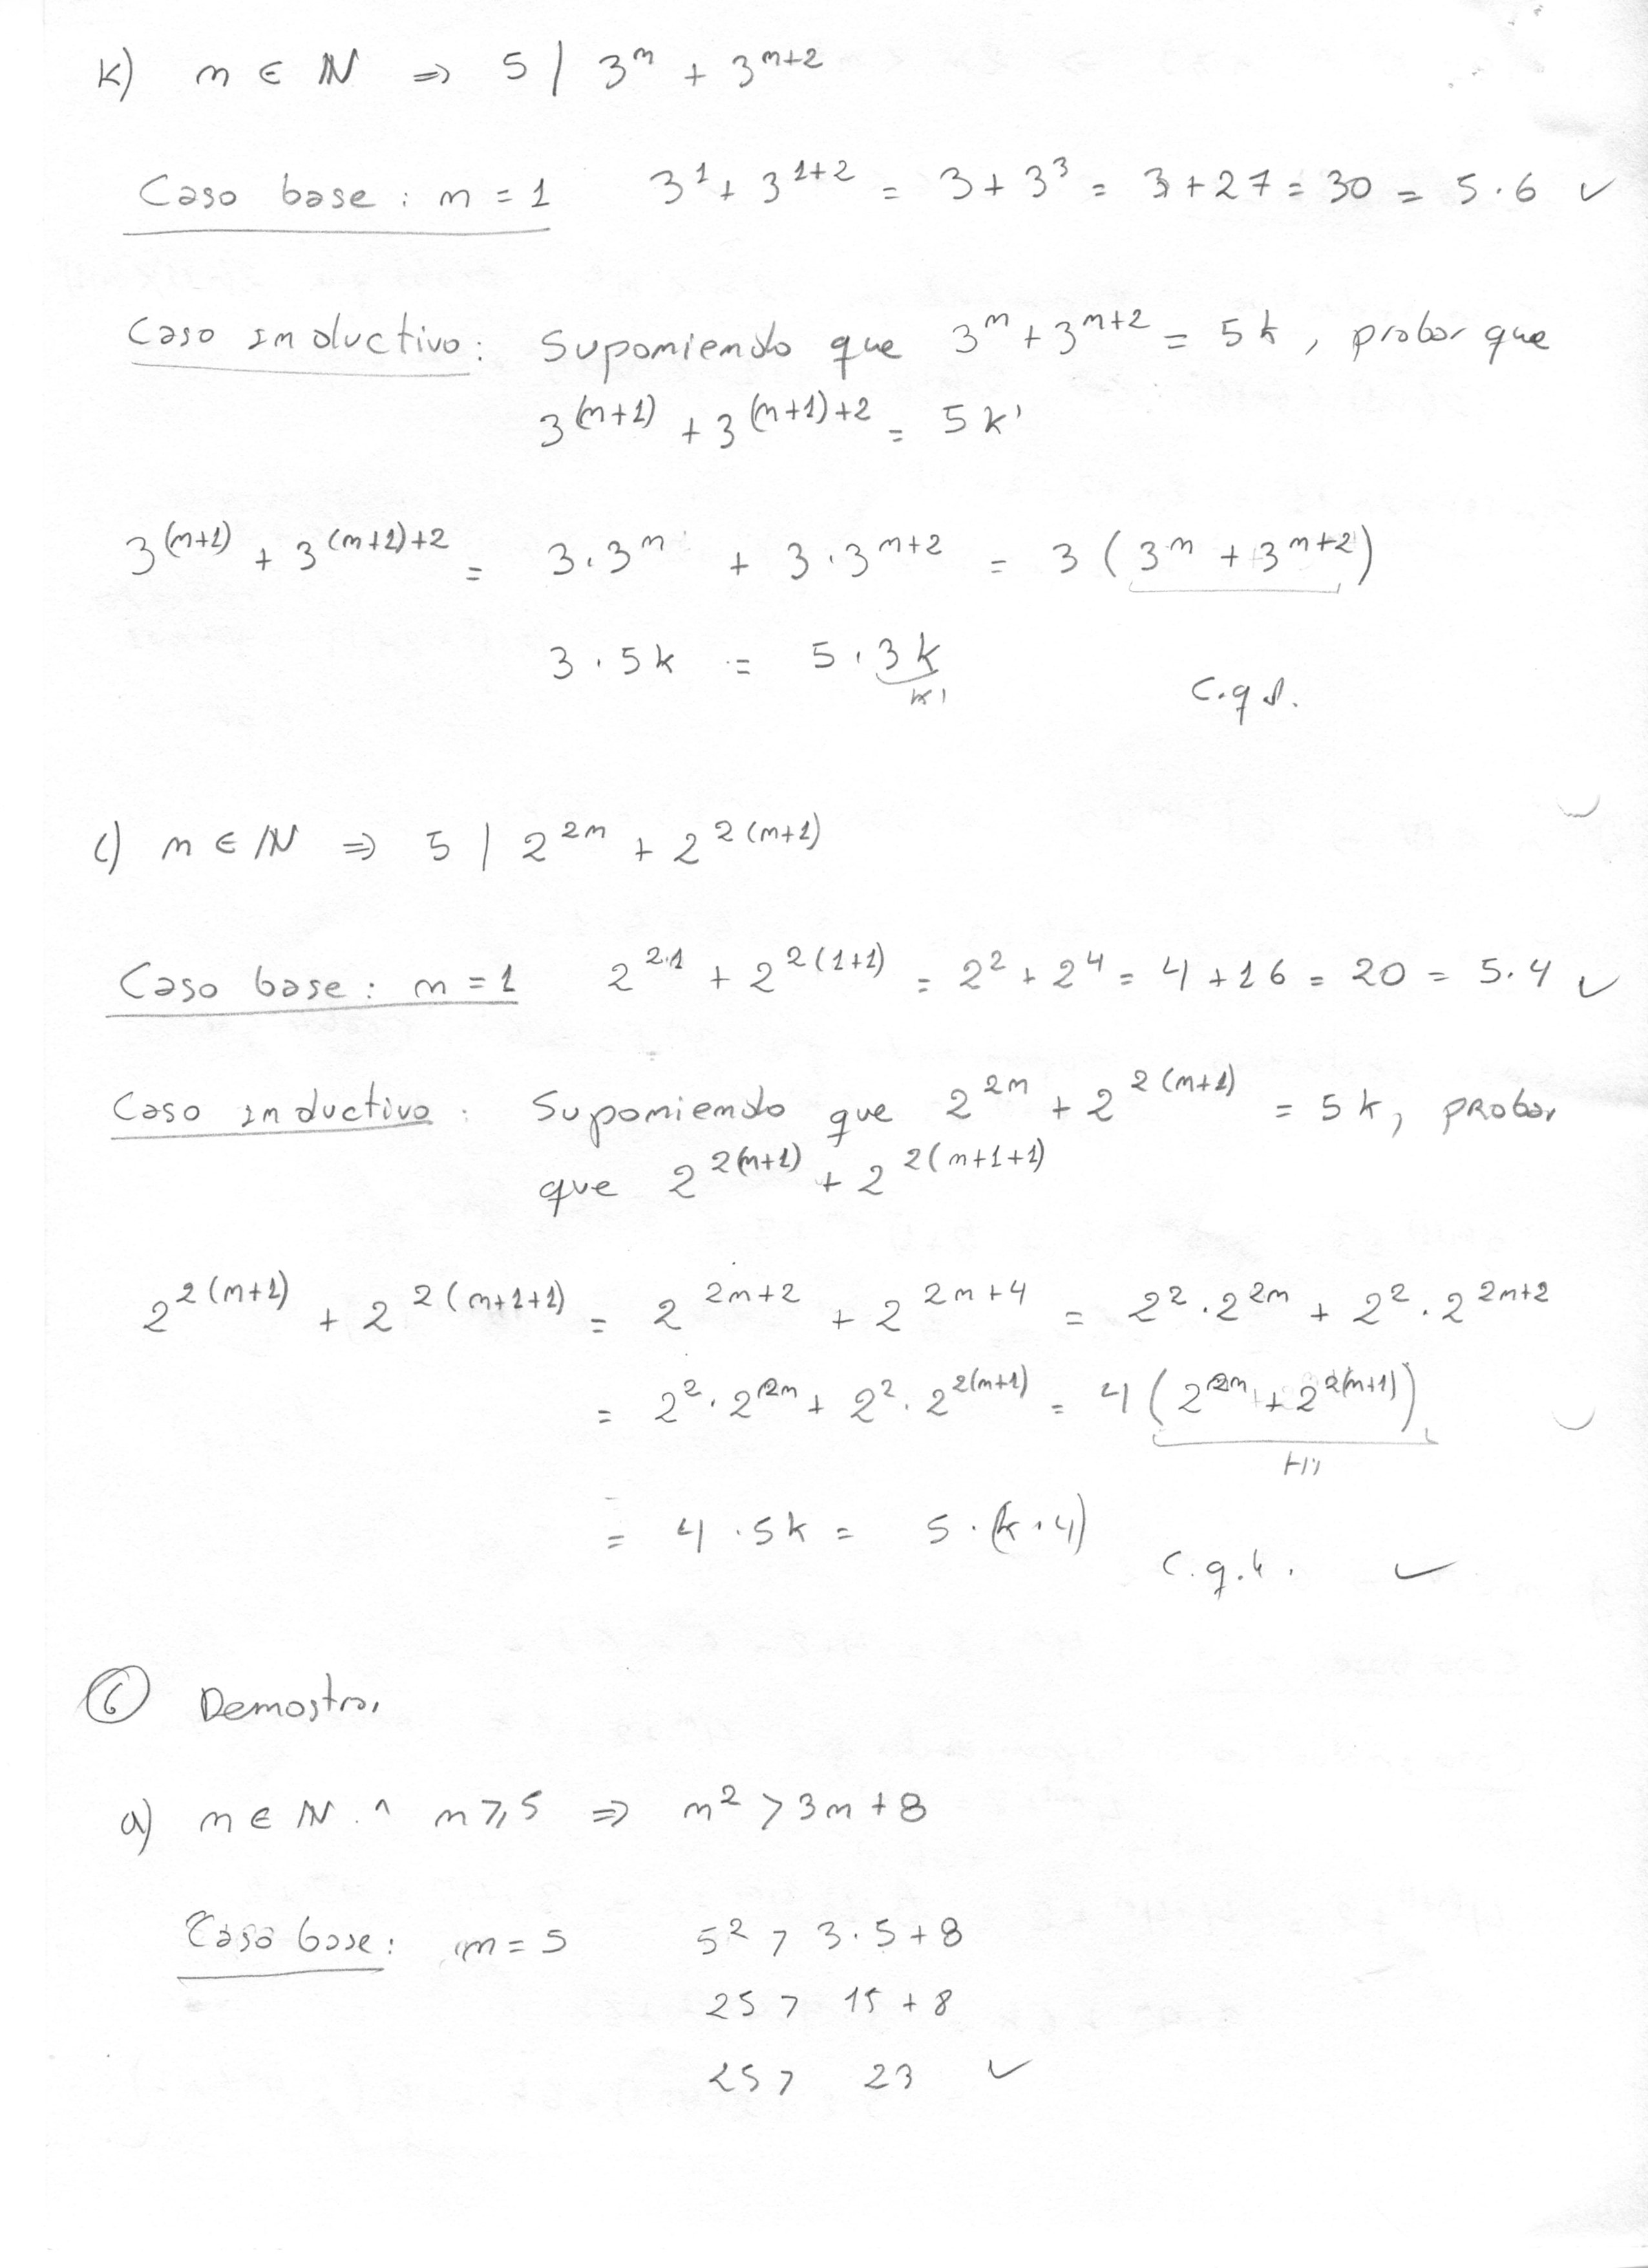 k) n ∈ ℕ ⇒ 5 | 3^n + 3^{n+2}
Caso base: n = 1 3^1 + 3^{1+2} = 3 + 3^3 = 3 + 27 = 30 = 5·6 ✓
Caso inductivo: Suponiendo que 3^n + 3^{n+2} = 5k, probar que
3^{(n+1)} + 3^{(n+1)+2} = 5k'
3^{(n+1)} + 3^{(n+1)+2} = 3·3^n + 3·3^{n+2} = 3(3^n + 3^{n+2})
3·5k = 5·3k
k'
c.q.d.
l) n ∈ ℕ ⇒ 5 | 2^{2n} + 2^{2(n+1)}
Caso base: n = 1 2^{2·1} + 2^{2(1+1)} = 2^2 + 2^4 = 4 + 16 = 20 = 5·4 ✓
Caso inductivo: Suponiendo que 2^{2n} + 2^{2(n+1)} = 5k, probar
que 2^{2(n+1)} + 2^{2(n+1+1)}
2^{2(n+1)} + 2^{2(n+1+1)} = 2^{2n+2} + 2^{2n+4} = 2^2·2^{2n} + 2^2·2^{2n+2}
= 2^2·2^{2n} + 2^2·2^{2(n+1)} = 4(2^{2n} + 2^{2(n+1)})
HI
= 4·5k = 5·(k·4)
c.q.d. ✓
⑥ Demostrar
a) n ∈ ℕ ∧ n ≥ 5 ⇒ n^2 > 3n + 8
Caso base: n = 5 5^2 > 3·5 + 8
25 > 15 + 8
25 > 23 ✓